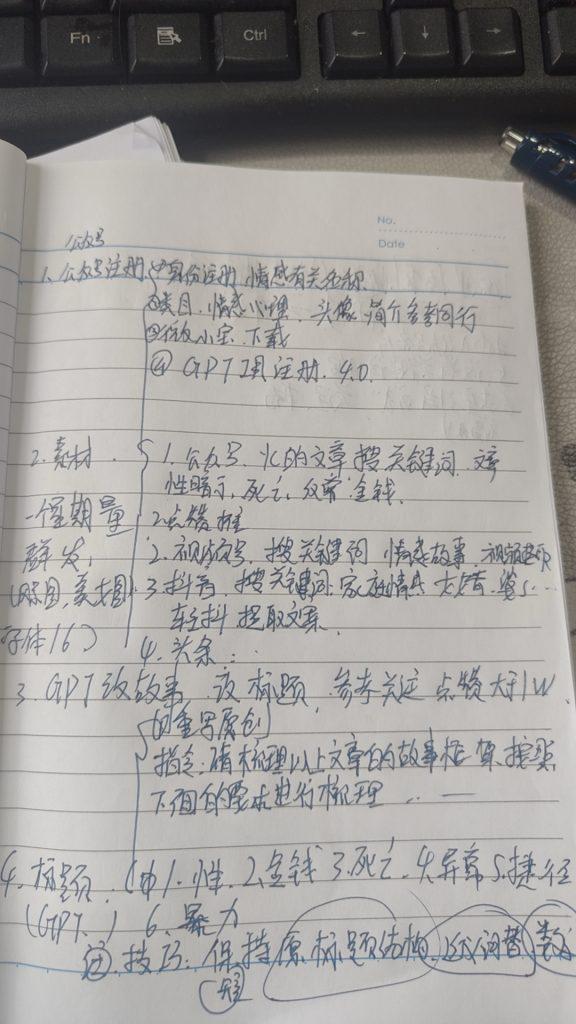 Fn
Ctrl
←
↓
→
No.
Date
公众号
1. 公众号注册 ①身份注册 情感有关名称
②类目,情感心理, 头像 简介参考同行
下载
④ GPT 注册. 4.0
2. 素材
1. 公众号. 的文章 搜关键词
性暗示, 死亡, 金钱.
一个星期量
2. 点赞
群发,
2. 视频号, 搜关键词 情感故事
3. 抖音, 搜关键词 家庭情
轻抖 提取文案
字体16)
4. 头条..
3. GPT改故事 改标题, 参考 点赞大于1W
的重写原创
指令:请梳理以上文章的故事框架 按照
下面的要求进行梳理 .. —
4. 标题. 1. 性. 2. 金钱 3. 死亡. 4. 异常 5. 捷径
(GPT.) 6. 暴力
技巧. 保持原标题结构 词替